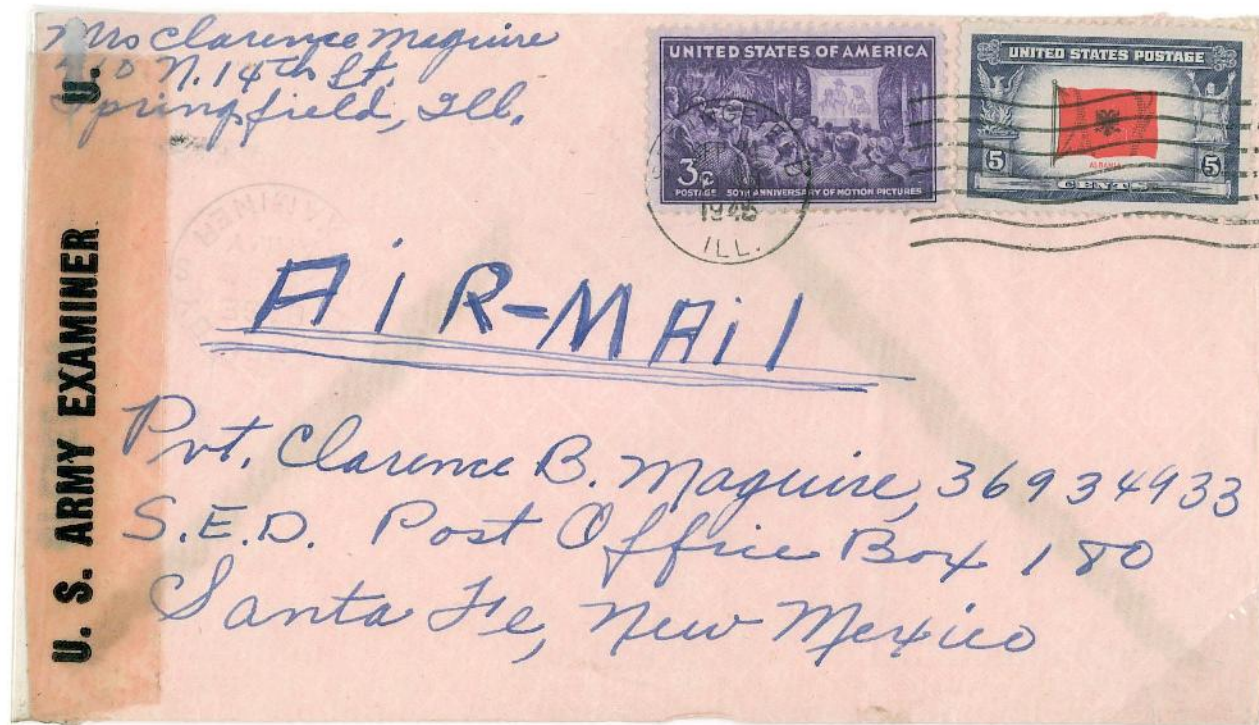 Mrs Clarence Maguire
N. 14th St.
Springfield, Ill.
UNITED STATES OF AMERICA
3¢
POSTAGE 50TH ANNIVERSARY OF MOTION PICTURES
UNITED STATES POSTAGE
ALBANIA
5 5
CENTS
1945
ILL.
AIR-MAIL
Pvt. Clarence B. Maguire, 36934933
S.E.D. Post Office Box 180
Santa Fe, New Mexico
U. S. ARMY EXAMINER U.